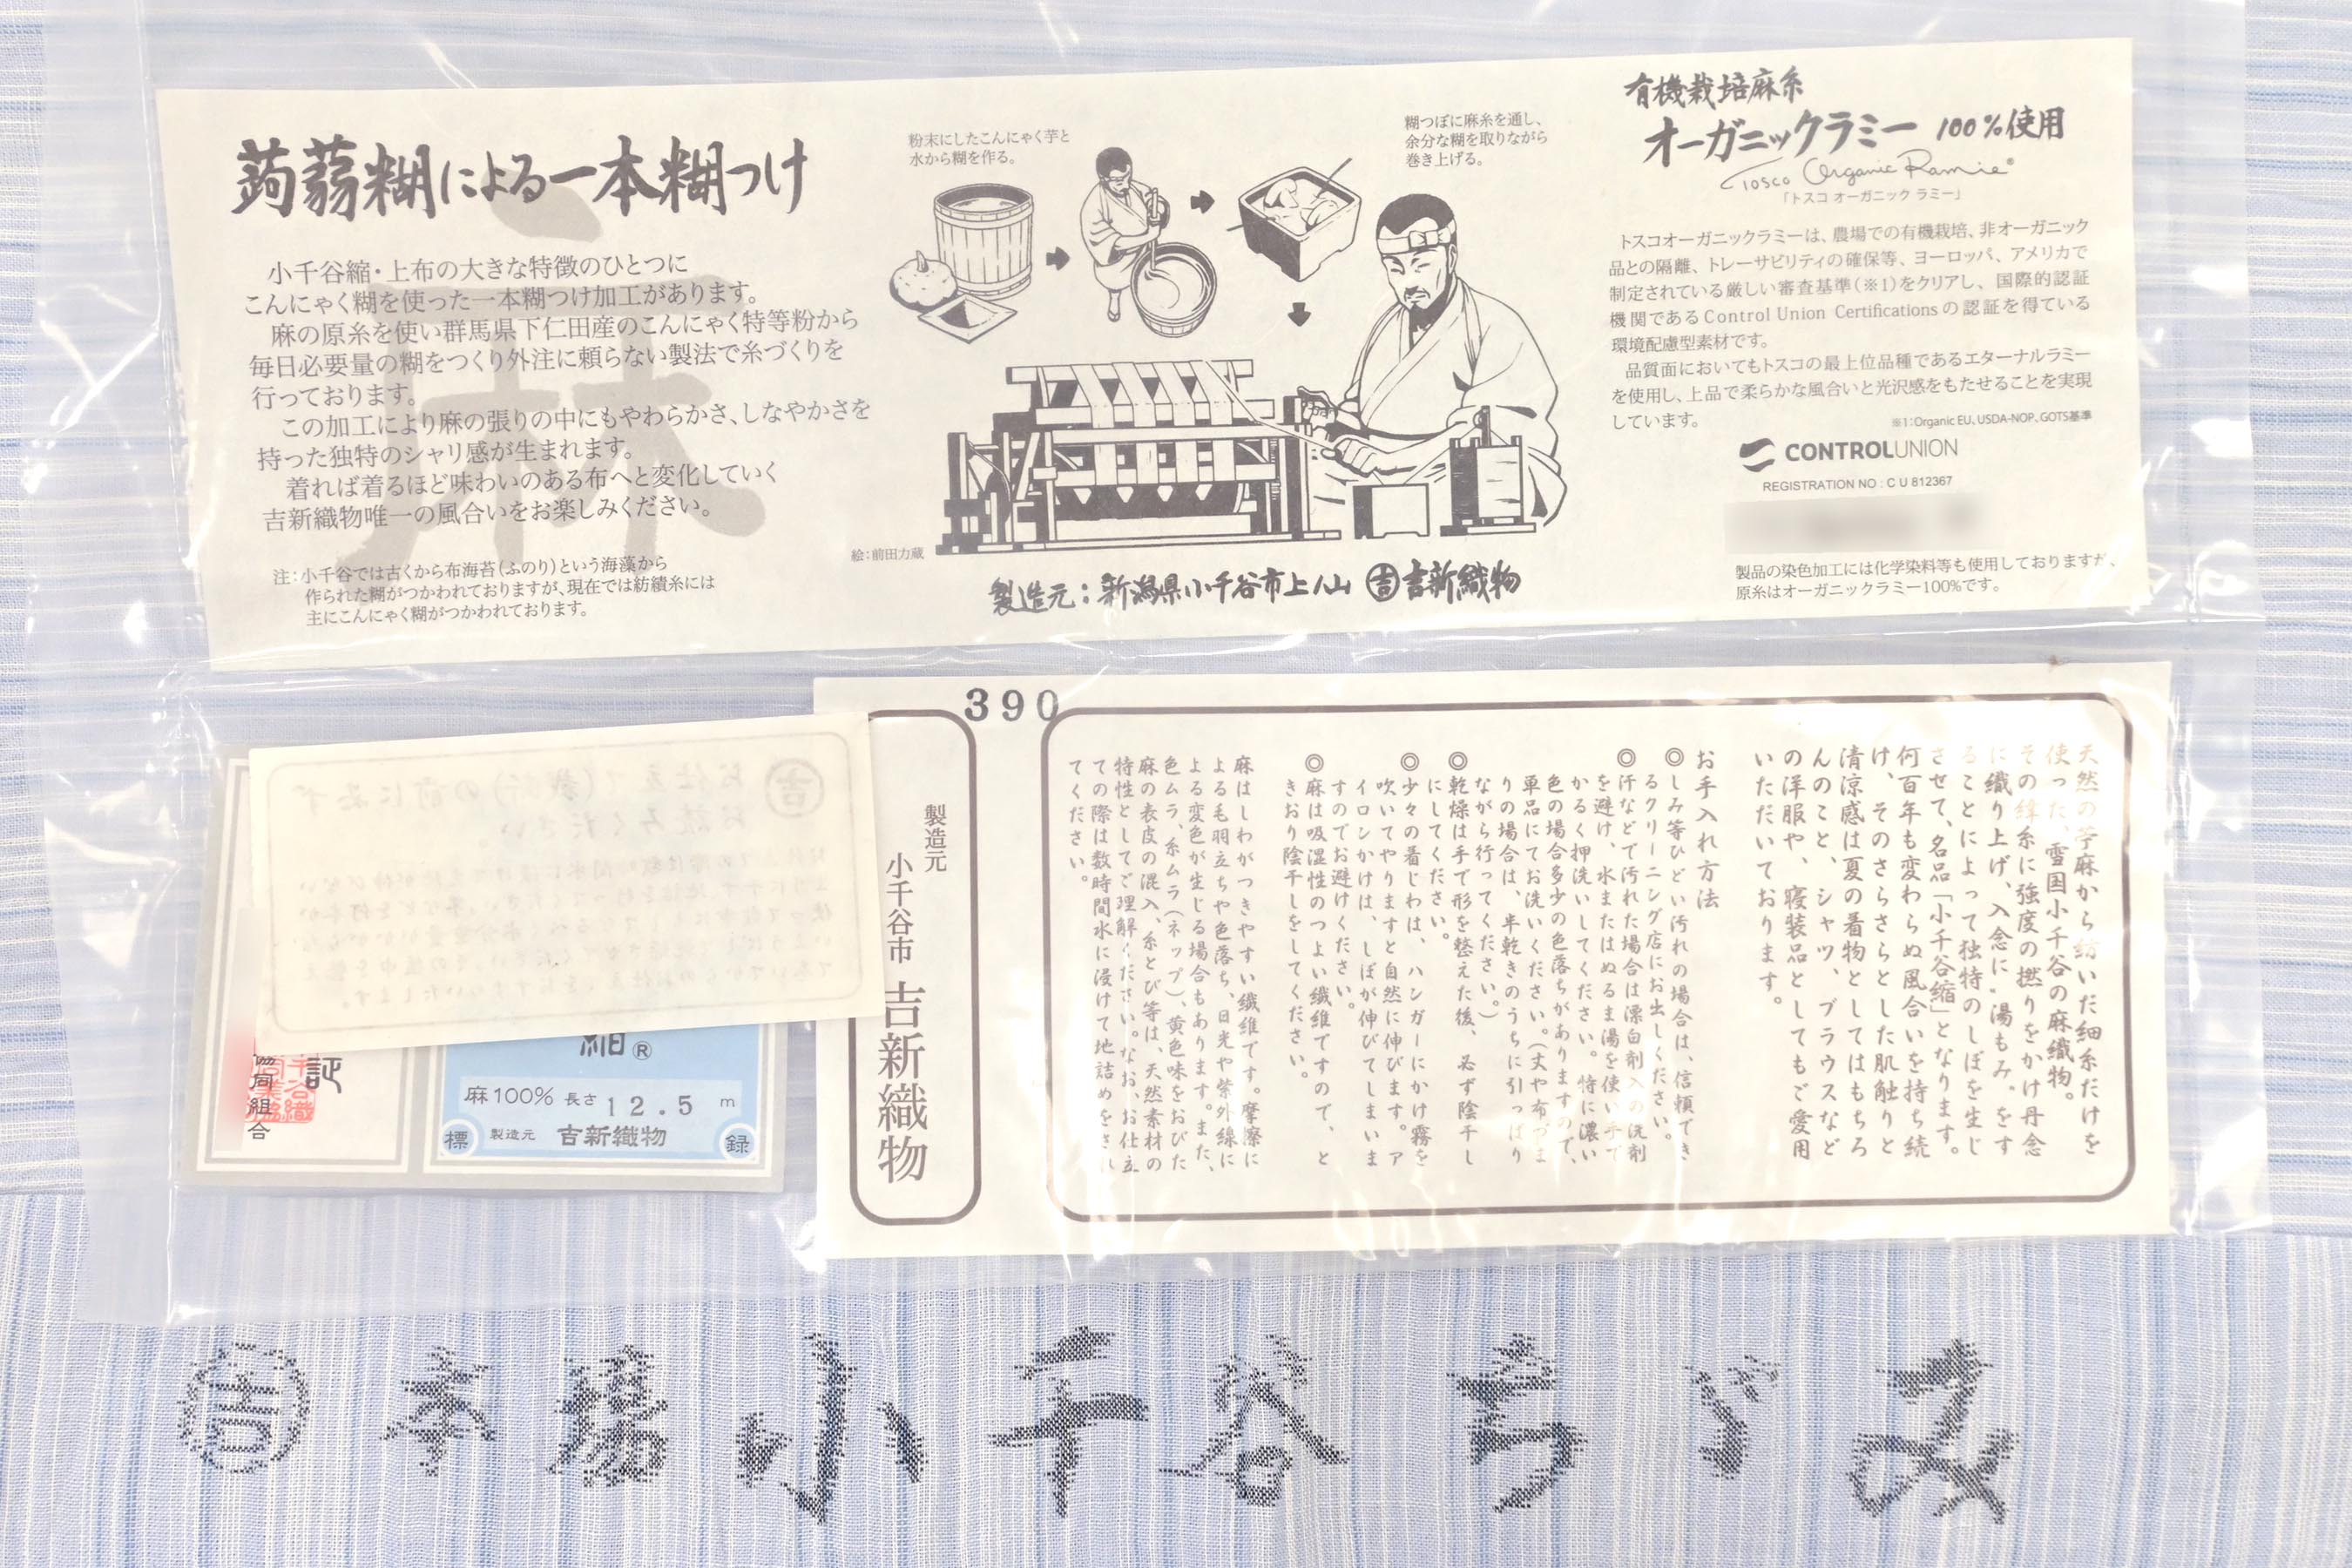 蒟蒻糊による一本糊つけ
小千谷縮・上布の大きな特徴のひとつに
こんにゃく糊を使った一本糊つけ加工があります。
麻の原糸を使い群馬県下仁田産のこんにゃく特等粉から
毎日必要量の糊をつくり外注に頼らない製法で糸づくりを
行っております。
この加工により麻の張りの中にもやわらかさ、しなやかさを
持った独特のシャリ感が生まれます。
着れば着るほど味わいのある布へと変化していく
吉新織物唯一の風合いをお楽しみください。
注：小千谷では古くから布海苔（ふのり）という海藻から
作られた糊がつかわれておりますが、現在では紡績糸には
主にこんにゃく糊がつかわれております。
麻
粉末にしたこんにゃく芋と
水から糊を作る。
糊つぼに麻糸を通し、
余分な糊を取りながら
巻き上げる。
絵：前田力蔵
製造元：新潟県小千谷市上ノ山 吉 吉新織物
有機栽培麻糸
オーガニックラミー 100%使用
Tosco Organic Ramie®
「トスコ オーガニック ラミー」
トスコオーガニックラミーは、農場での有機栽培、非オーガニック
品との隔離、トレーサビリティの確保等、ヨーロッパ、アメリカで
制定されている厳しい審査基準（※1）をクリアし、国際的認証
機関であるControl Union Certificationsの認証を得ている
環境配慮型素材です。
品質面においてもトスコの最上位品種であるエターナルラミー
を使用し、上品で柔らかな風合いと光沢感をもたせることを実現
しています。
※1：Organic EU, USDA-NOP、GOTS基準
CONTROLUNION
REGISTRATION NO : C U 812367
製品の染色加工には化学染料等も使用しておりますが、
原糸はオーガニックラミー100%です。
390
天然の苧麻から紡いだ細糸だけを
使った、雪国小千谷の麻織物。
その緯糸に強度の撚りをかけ丹念
に織り上げ、入念に"湯もみ"をす
ることによって独特のしぼを生じ
させて、名品「小千谷縮」となります。
何百年も変わらぬ風合いを持ち続
け、そのさらさらとした肌触りと
清涼感は夏の着物としてはもちろ
んのこと、シャツ、ブラウスなど
の洋服や、寝装品としてもご愛用
いただいております。
お手入れ方法
◎しみ等ひどい汚れの場合は、信頼でき
るクリーニング店にお出しください。
◎汗などで汚れた場合は漂白剤入の洗剤
を避け、水またはぬるま湯を使い手で
かるく押洗いしてください。特に濃い
色の場合多少の色落ちがありますので、
単品にてお洗いください。（丈や布づま
りの場合は、半乾きのうちに引っぱり
ながら行ってください。）
◎乾燥は手で形を整えた後、必ず陰干し
にしてください。
◎少々の着じわは、ハンガーにかけ霧を
吹いてやりますと自然に伸びます。ア
イロンかけは、しぼが伸びてしまいま
すのでお避けください。
◎麻は吸湿性のつよい繊維ですので、と
きおり陰干しをしてください。
麻はしわがつきやすい繊維です。摩擦に
よる毛羽立ちや色落ち、日光や紫外線に
よる変色が生じる場合もあります。また、
色ムラ、糸ムラ（ネップ）、黄色味をおびた
麻の表皮の混入、糸とび等は、天然素材の
特性としてご理解ください。なお、お仕立
ての際は数時間水に浸けて地詰めをされ
てください。
製造元
小千谷市 吉新織物
証
協同組合
縮®
麻100% 長さ12.5 m
標 製造元 吉新織物 録
吉 本場小千谷ちぢみ